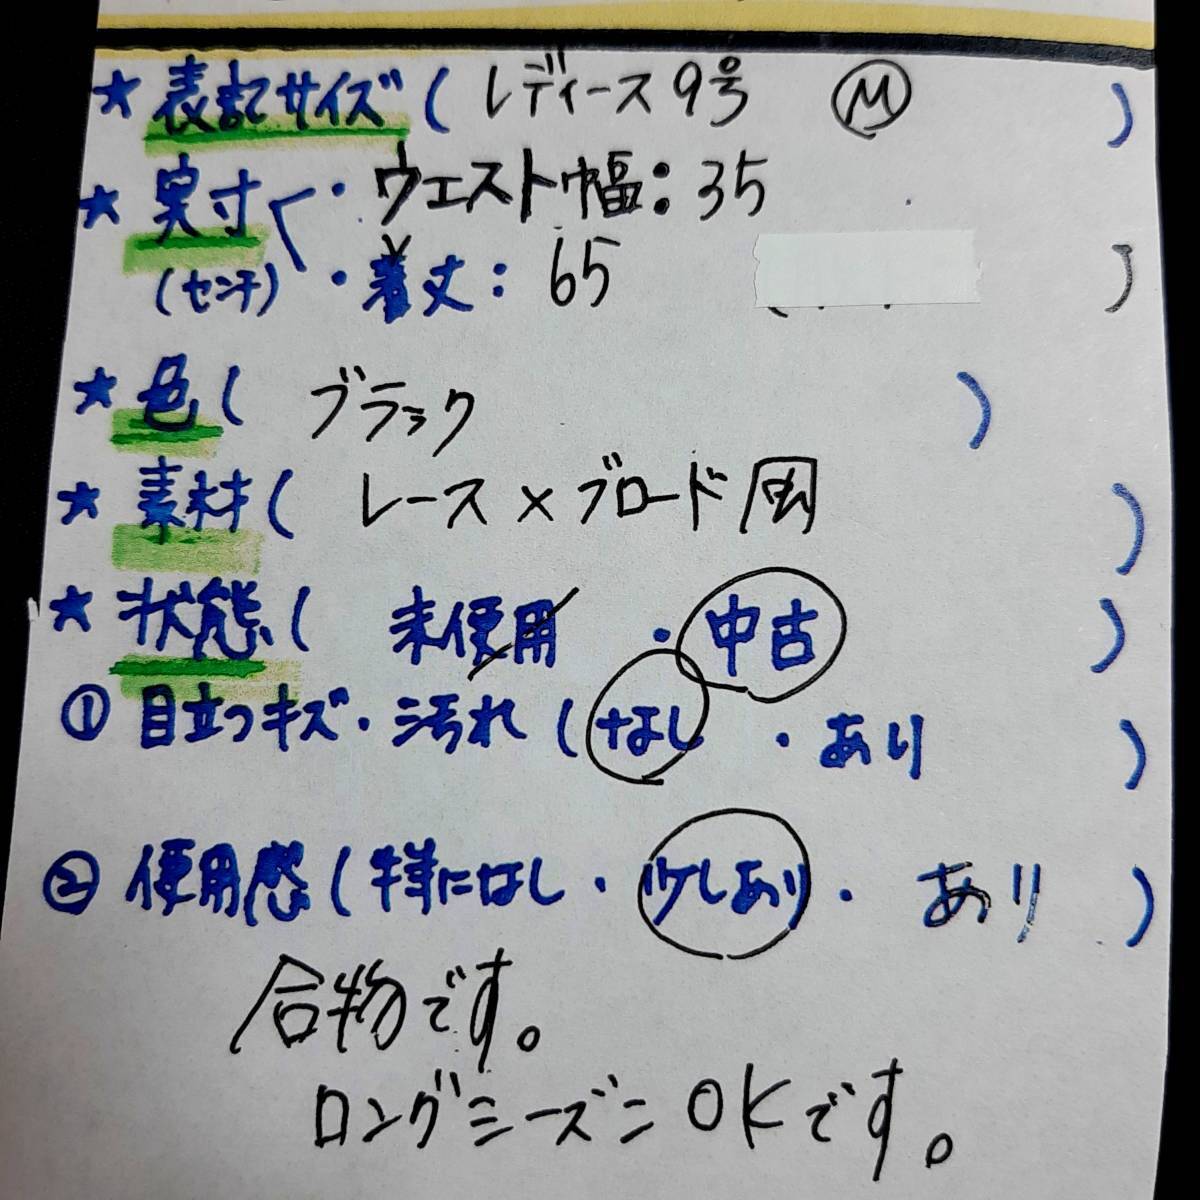 ★ 表記サイズ ( レディース9号 Ⓜ )
★ 実寸 〈 ・ウエスト幅: 35
(センチ) ・着丈: 65 )
★ 色 ( ブラック )
★ 素材 ( レース×ブロード風 )
★ 状態 ( 未使用 ・ 中古 )
① 目立つキズ・汚れ ( なし ・ あり )
② 使用感 ( 特になし ・ 少しあり ・ あり )
合物です。
ロングシーズンOKです。